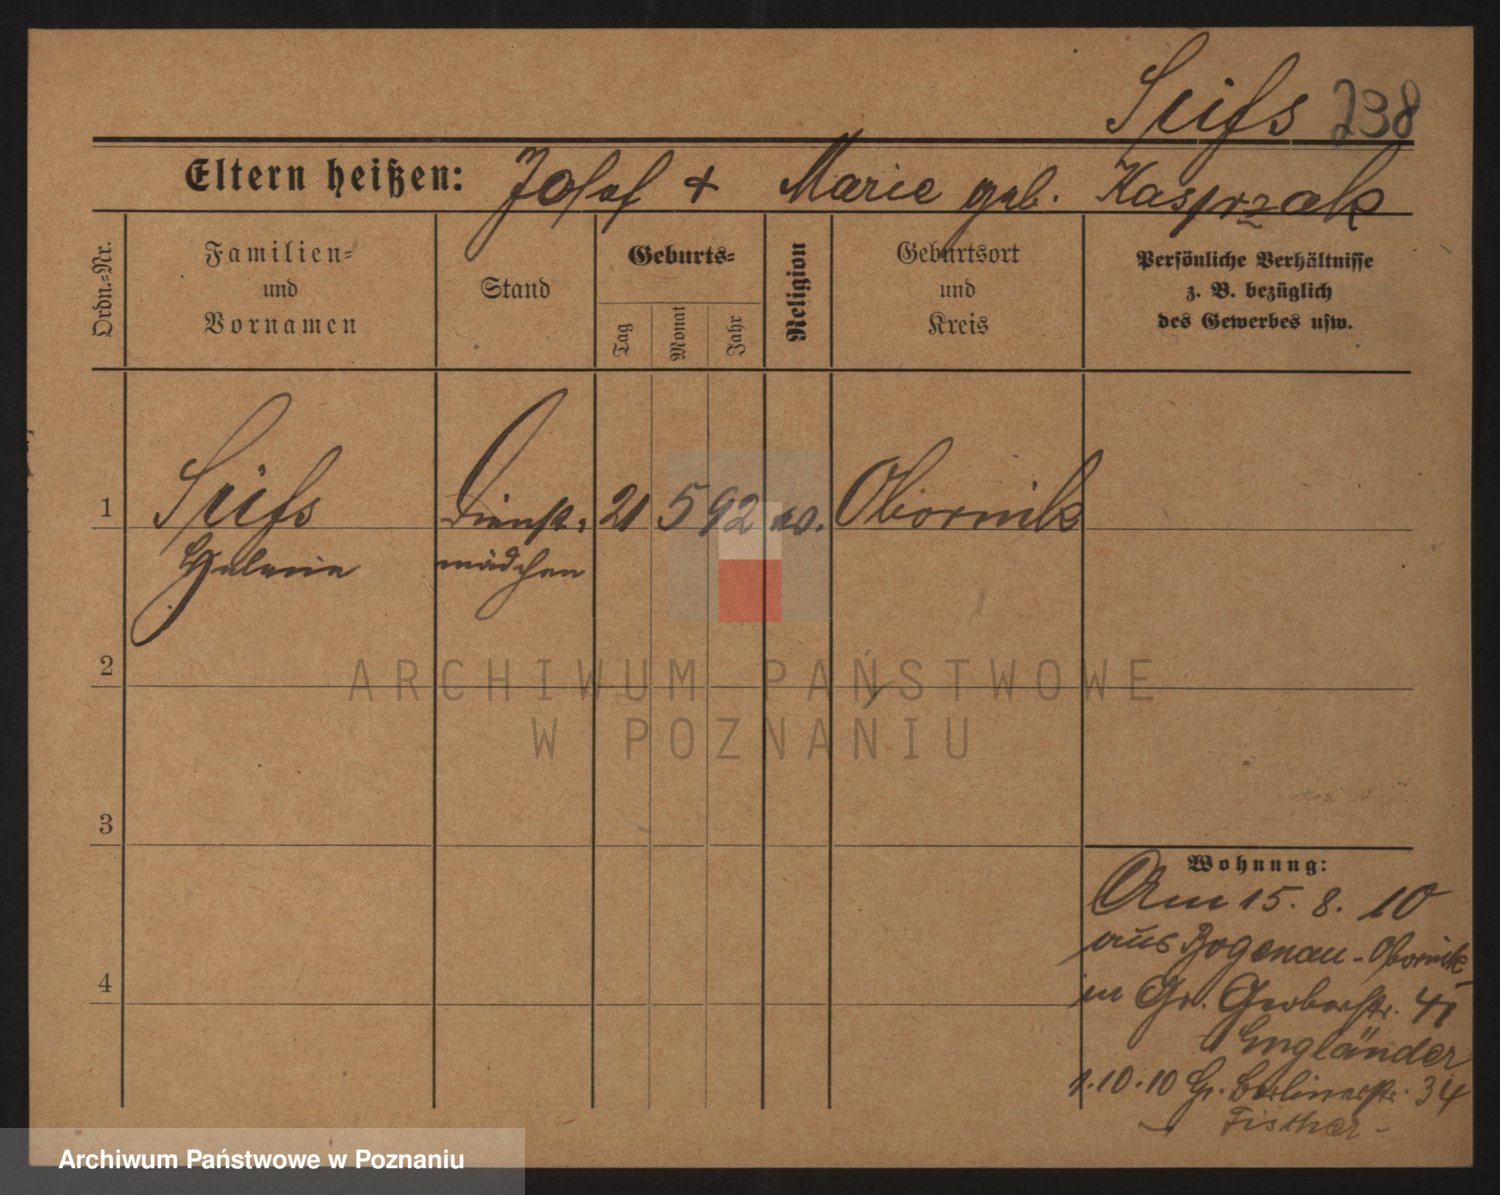 238
Eltern heißen: Josef + Marie geb. Kasprzak
Ordn.-Nr.
Familien-
und
Vornamen
Stand
Geburts-
Tag
Monat
Jahr
Religion
Geburtsort
und
Kreis
Persönliche Verhältnisse
z. B. bezüglich
des Gewerbes usw.
1
Dienst-
21
5
92
Obornik
Helene
mädchen
2
ARCHIWUM PAŃSTWOWE
W POZNANIU
3
Wohnung:
Am 15. 8. 10
aus Bogenau - Obornik
in Gr. Gerberstr. 41
Engländer
1.10.10 Gr. Berlinerstr. 34
Fischer
4
Archiwum Państwowe w Poznaniu